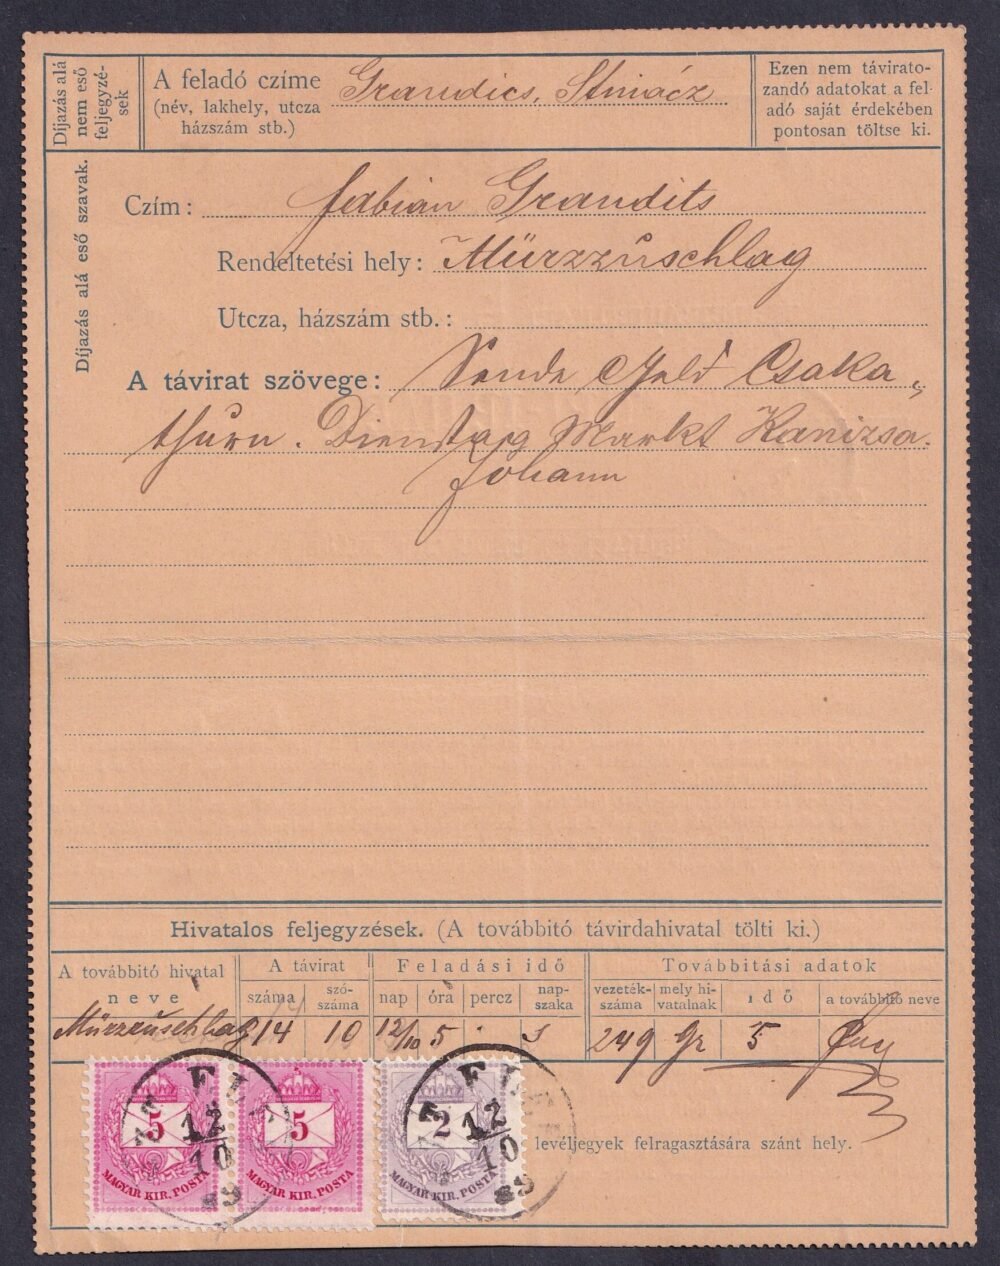 Díjazás alá
nem eső
feljegyzé-
sek
A feladó czíme
(név, lakhely, utcza
házszám stb.)
Grandics, Strinócz
Ezen nem távirato-
zandó adatokat a fel-
adó saját érdekében
pontosan töltse ki.
Díjazás alá eső szavak.
Czím: Fabian Grandits
Rendeltetési hely: Mürzzuschlag
Utcza, házszám stb.:
A távirat szövege: Sende Geld Csaka„
thurn. Dienstag Markt Kanizsa.
Johann
Hivatalos feljegyzések. (A továbbitó távirdahivatal tölti ki.)
A továbbitó hivatal
neve
A távirat
száma
szó-
száma
Feladási idő
nap
óra
percz
nap-
szaka
Továbbitási adatok
vezeték-
száma
mely hi-
vatalnak
idő
a továbbitó neve
Mürzzuschlag 14 10 12/10 5 249 Gr 5
5 5 2
MAGYAR KIR. POSTA MAGYAR KIR. POSTA MAGYAR KIR. POSTA
12 12
10 10
89 89
levéljegyek felragasztására szánt hely.